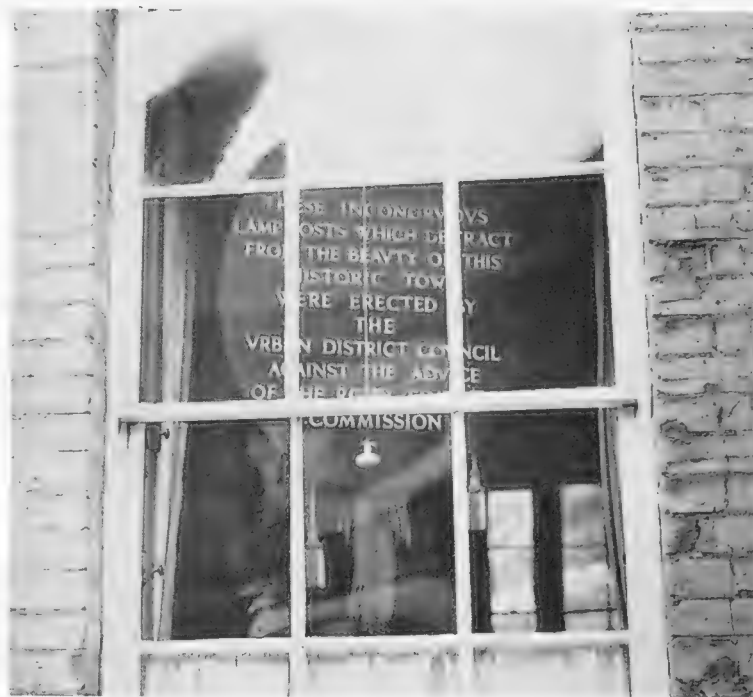 THESE INCONGRVOVS
LAMPPOSTS WHICH DETRACT
FROM THE BEAUTY OF THIS
HISTORIC TOWN
WERE ERECTED BY
THE
VRBAN DISTRICT COUNCIL
AGAINST THE ADVICE
OF THE ROYAL
COMMISSION